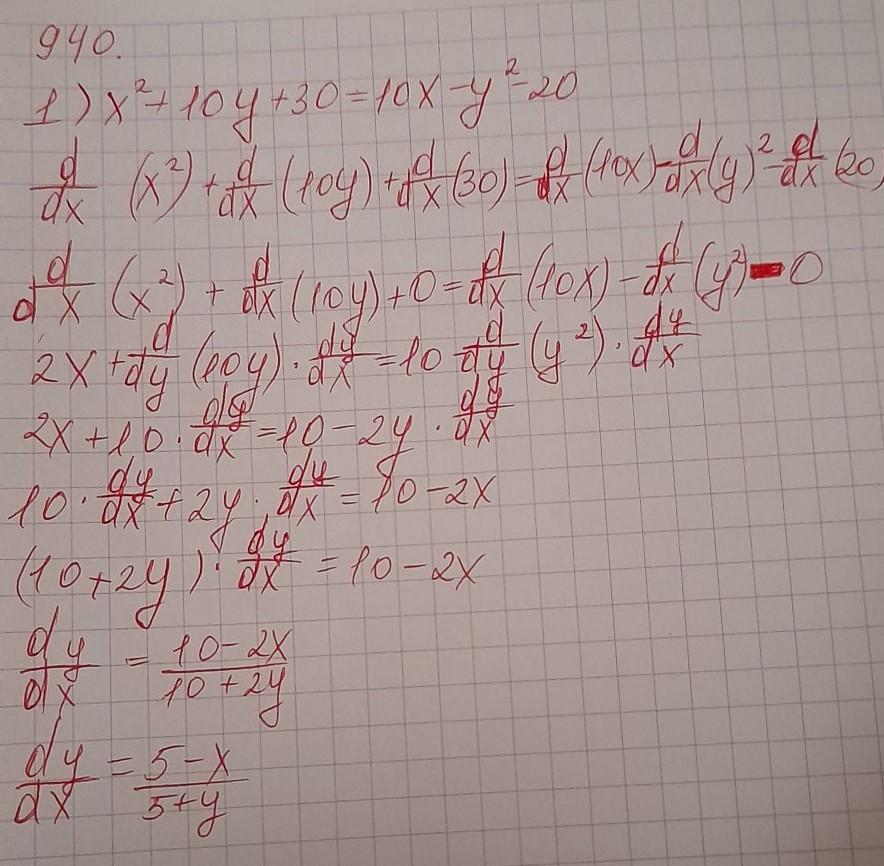 940.
1) x² + 10y + 30 = 10x - y² - 20
d/dx (x²) + d/dx (10y) + d/dx (30) = d/dx (10x) - d/dx (y)² - d/dx (20)
d d/x (x²) + d/dx (10y) + 0 = d/dx (10x) - d/dx (y²) - 0
2x + d/dy (10y) · dy/dx = 10 d/dy (y²) · dy/dx
2x + 10 · dy/dx = 10 - 2y · dy/dx
10 · dy/dx + 2y · dy/dx = 10 - 2x
(10 + 2y) · dy/dx = 10 - 2x
dy/dx = 10 - 2x / 10 + 2y
dy/dx = 5 - x / 5 + y